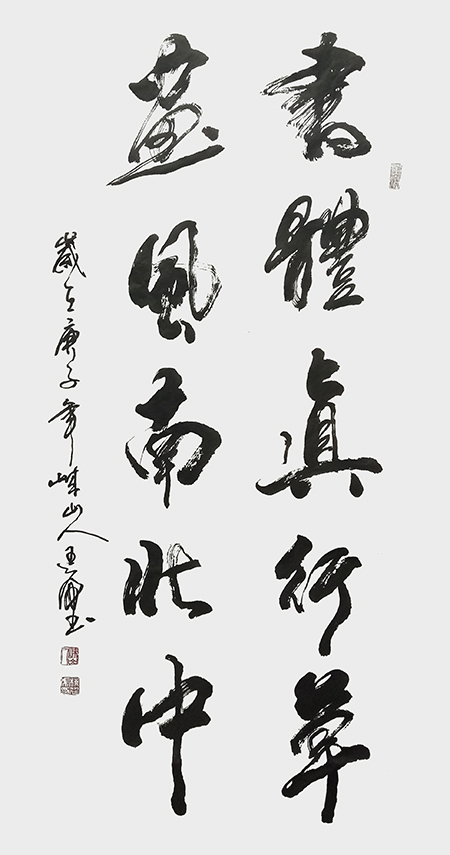 書體眞行草
畫風南北中
歲在庚子年山人